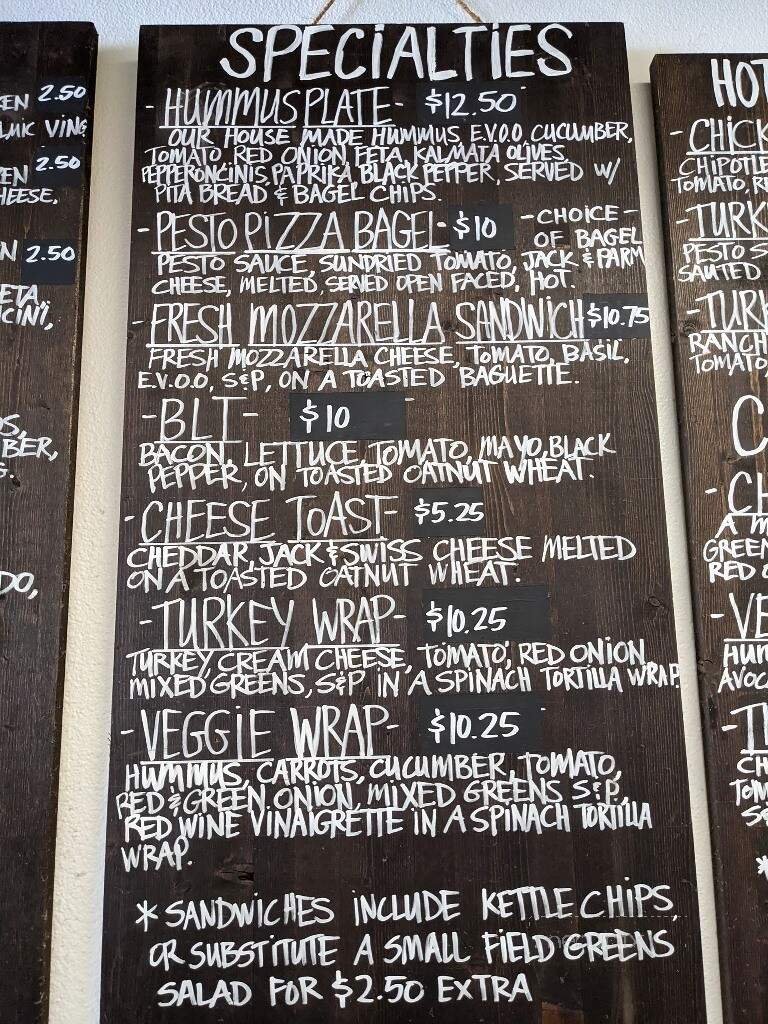 SPECIALTIES
- HUMMUS PLATE - $12.50
OUR HOUSE MADE HUMMUS E.V.O.O CUCUMBER,
TOMATO, RED ONION, FETA, KALMATA OLIVES,
PEPPERONCINIS, PAPRIKA, BLACK PEPPER, SERVED W/
PITA BREAD & BAGEL CHIPS.
- PESTO PIZZA BAGEL - $10 - CHOICE -
OF BAGEL
PESTO SAUCE, SUNDRIED TOMATO, JACK & PARM
CHEESE, MELTED, SERVED OPEN FACED, HOT.
- FRESH MOZZARELLA SANDWICH $10.75
FRESH MOZZARELLA CHEESE, TOMATO, BASIL,
E.V.O.O, S&P, ON A TOASTED BAGUETTE.
- BLT - $10
BACON, LETTUCE, TOMATO, MAYO, BLACK
PEPPER, ON TOASTED OATNUT WHEAT.
- CHEESE TOAST - $5.25
CHEDDAR, JACK & SWISS CHEESE MELTED
ON A TOASTED OATNUT WHEAT.
- TURKEY WRAP - $10.25
TURKEY, CREAM CHEESE, TOMATO, RED ONION
MIXED GREENS, S&P IN A SPINACH TORTILLA WRAP.
- VEGGIE WRAP - $10.25
HUMMUS, CARROTS, CUCUMBER, TOMATO,
RED & GREEN ONION, MIXED GREENS S&P,
RED WINE VINAIGRETTE IN A SPINACH TORTILLA
WRAP.
* SANDWICHES INCLUDE KETTLE CHIPS,
OR SUBSTITUTE A SMALL FIELD GREENS
SALAD FOR $2.50 EXTRA
2.50
2.50
HEESE,
2.50
BER,
DO,
HOT
- CHICK
CHIPOTLE
TOMATO, RE
- TURK
PESTO S
SAUTED
- TURK
RANCH
TOMATO,
C
- CH
A M
GREEN
RED
- VE
HUM
AVOC